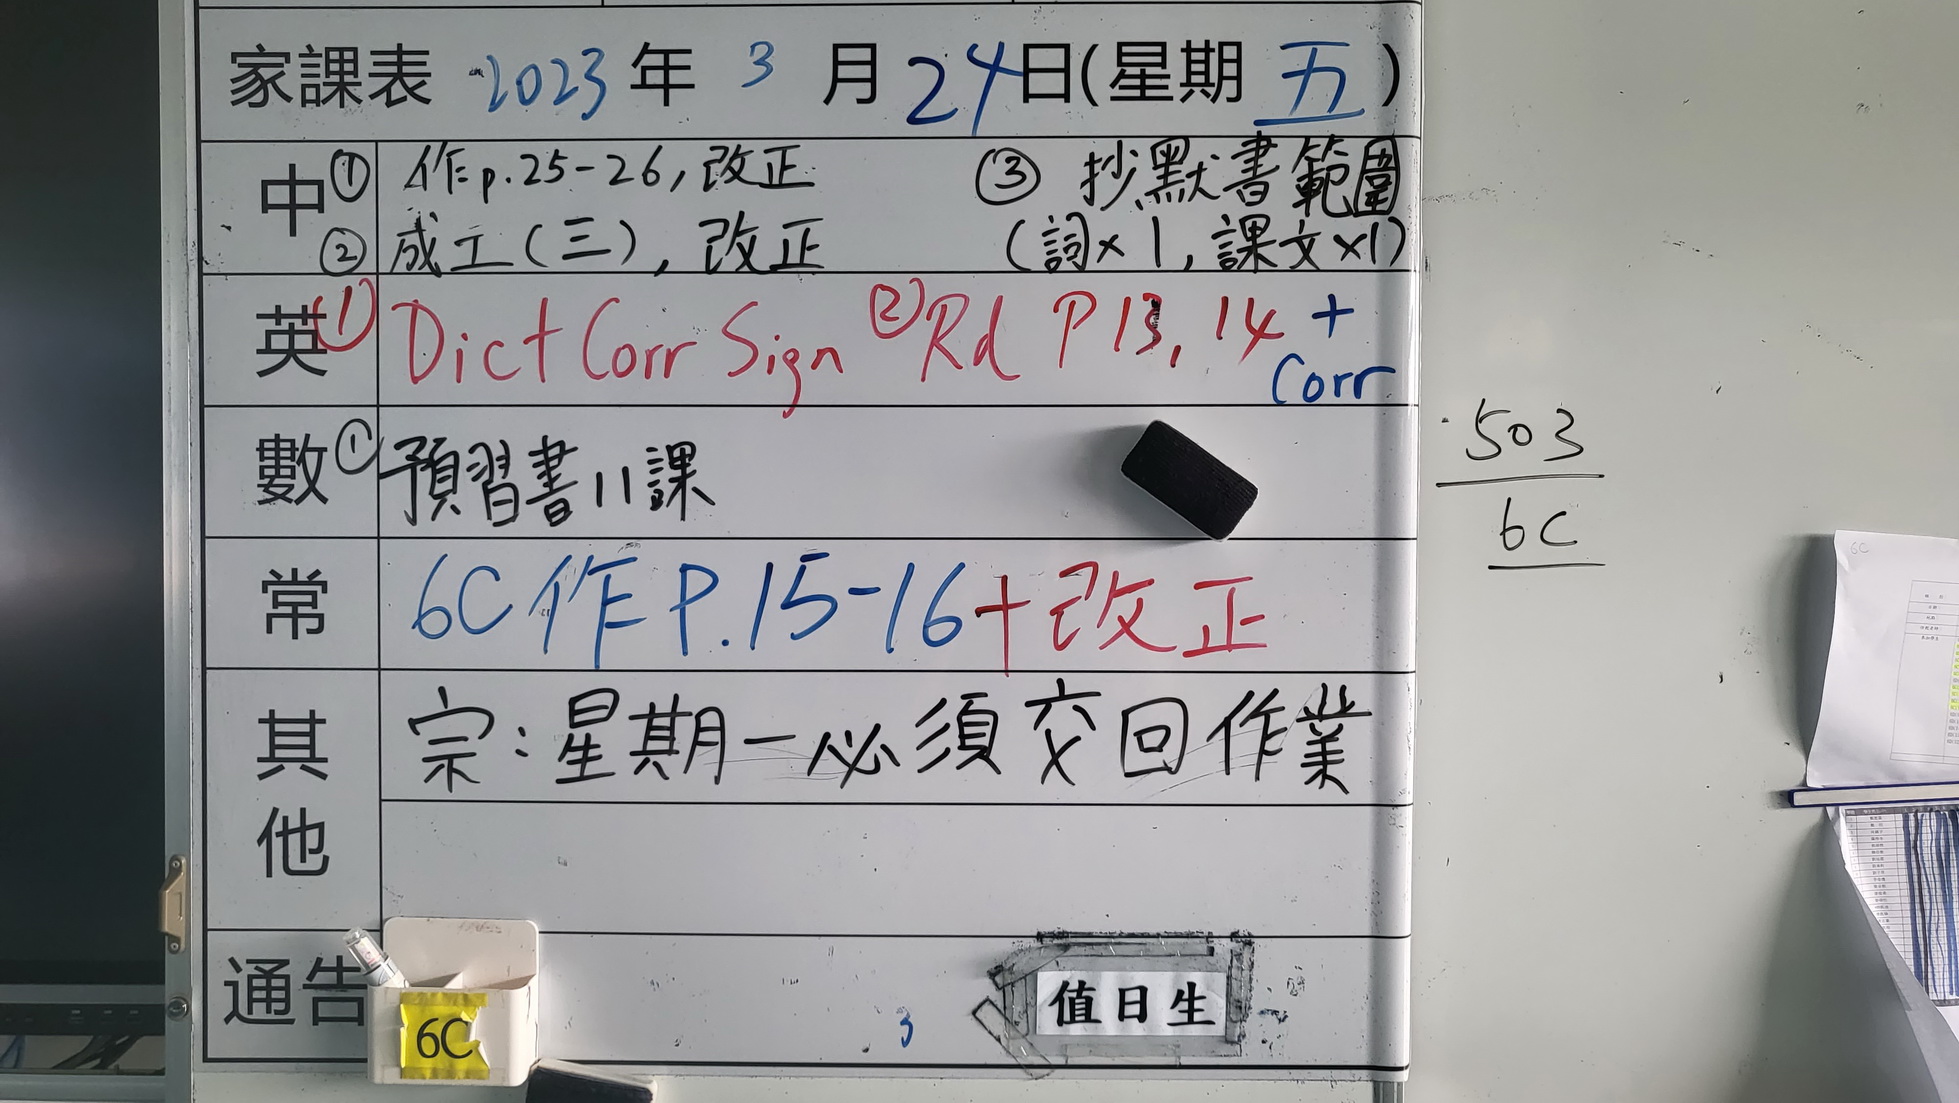 家課表 2023年 3月24日(星期五)
中 ① 作p.25-26,改正 ③ 抄默書範圍
② 成工(三),改正 (詞×1,課文×1)
英 ① Dict Corr Sign ② Rd P13, 14 +
Corr
數 ① 預習書11課
常 6C作P.15-16+改正
其他 宗:星期一必須交回作業
通告
3
值日生
6C
503
6C
6C